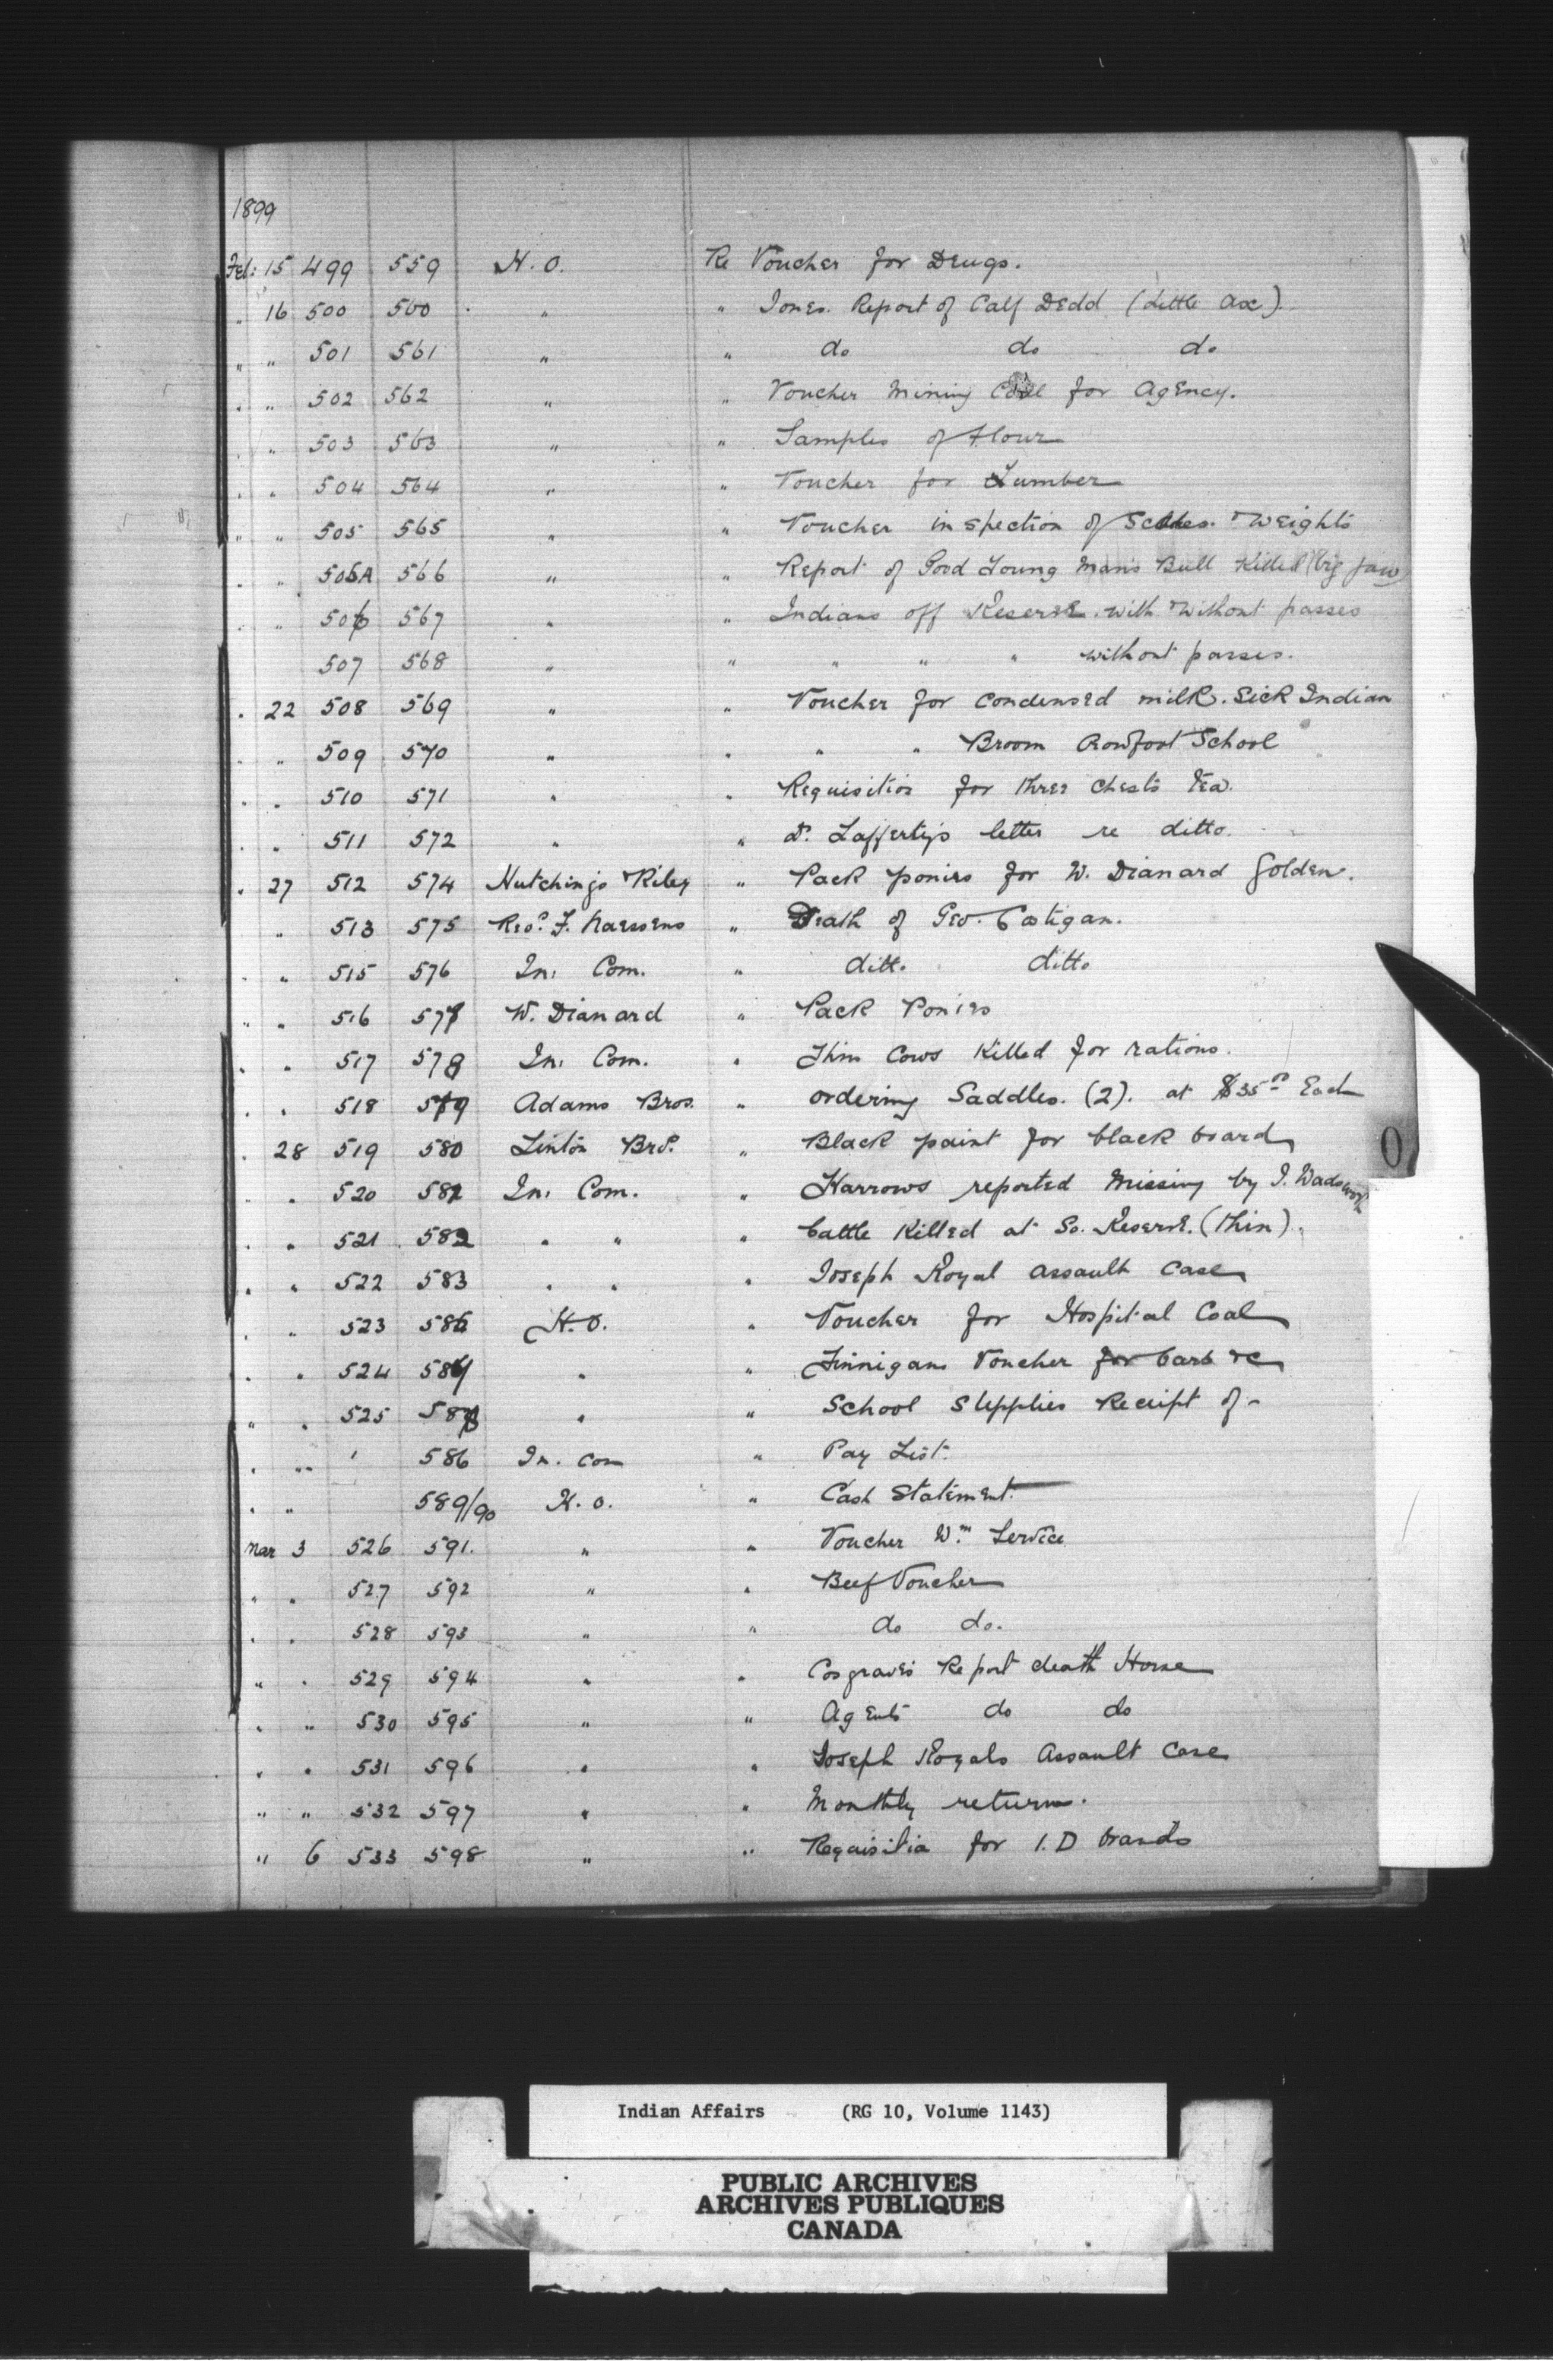 1899
Feb: 15 499 559 H. O. Re Voucher for Drugs.
" 16 500 560 " " Jones Report of Calf Dedd (Little Axe).
" " 501 561 " " do do do
" " 502 562 " " Voucher Mining Coal for Agency.
" 503 563 " " Samples of Flour
" " 504 564 " " Voucher for Lumber
" " 505 565 " " Voucher inspection of Scales. Weights
" " 505A 566 " " Report of Good Young Man's Bull Killed (big jaw)
" 506 567 " " Indians off Reserve with & without passes
507 568 " " " " " without passes.
" 22 508 569 " " Voucher for Condensed milk. Sick Indian
" " 509 570 " " " " Broom Crowfoot School
" " 510 571 " " Requisition for three chests Tea.
" " 511 572 " " Dr. Lafferty's letter re ditto.
" 27 512 574 Hutchings & Riley " Pack ponies for W. Dianard Golden.
" 513 575 Revd. F. Naessens " Death of Geo. Costigan.
" " 515 576 In: Com. " ditto ditto
" " 516 577 W. Dianard " Pack Ponies
" " 517 578 In: Com. " Thin Cows Killed for rations.
" " 518 579 Adams Bros. " Ordering Saddles. (2). at $35.00 Each
" 28 519 580 Linton Bros. " Black paint for black board
" " 520 581 In: Com. " Harrows reported missing by J. Wadsworth
" " 521 582 " " " Cattle Killed at So. Reserve. (thin).
" " 522 583 " " " Joseph Royal Assault Case
" " 523 586 H. O. " Voucher for Hospital Coal
" " 524 587 " " Finnigans Voucher for Carb &c
" " 525 588 " " School Supplies Receipt of -
" " ' 586 In. Com " Pay List.
" " 589/90 H. O. " Cash Statement.
Mar 3 526 591. " " Voucher Wm. Service
" " 527 592 " " Beef Voucher
" " 528 593 " " do do.
" " 529 594 " " Cosgraves Report death Horse
" " 530 595 " " Agents do do
" " 531 596 " " Joseph Royals Assault Case
" " 532 597 " " Monthly returns.
" 6 533 598 " " Requisitia for I.D brands
0
Indian Affairs (RG 10, Volume 1143)
PUBLIC ARCHIVES
ARCHIVES PUBLIQUES
CANADA